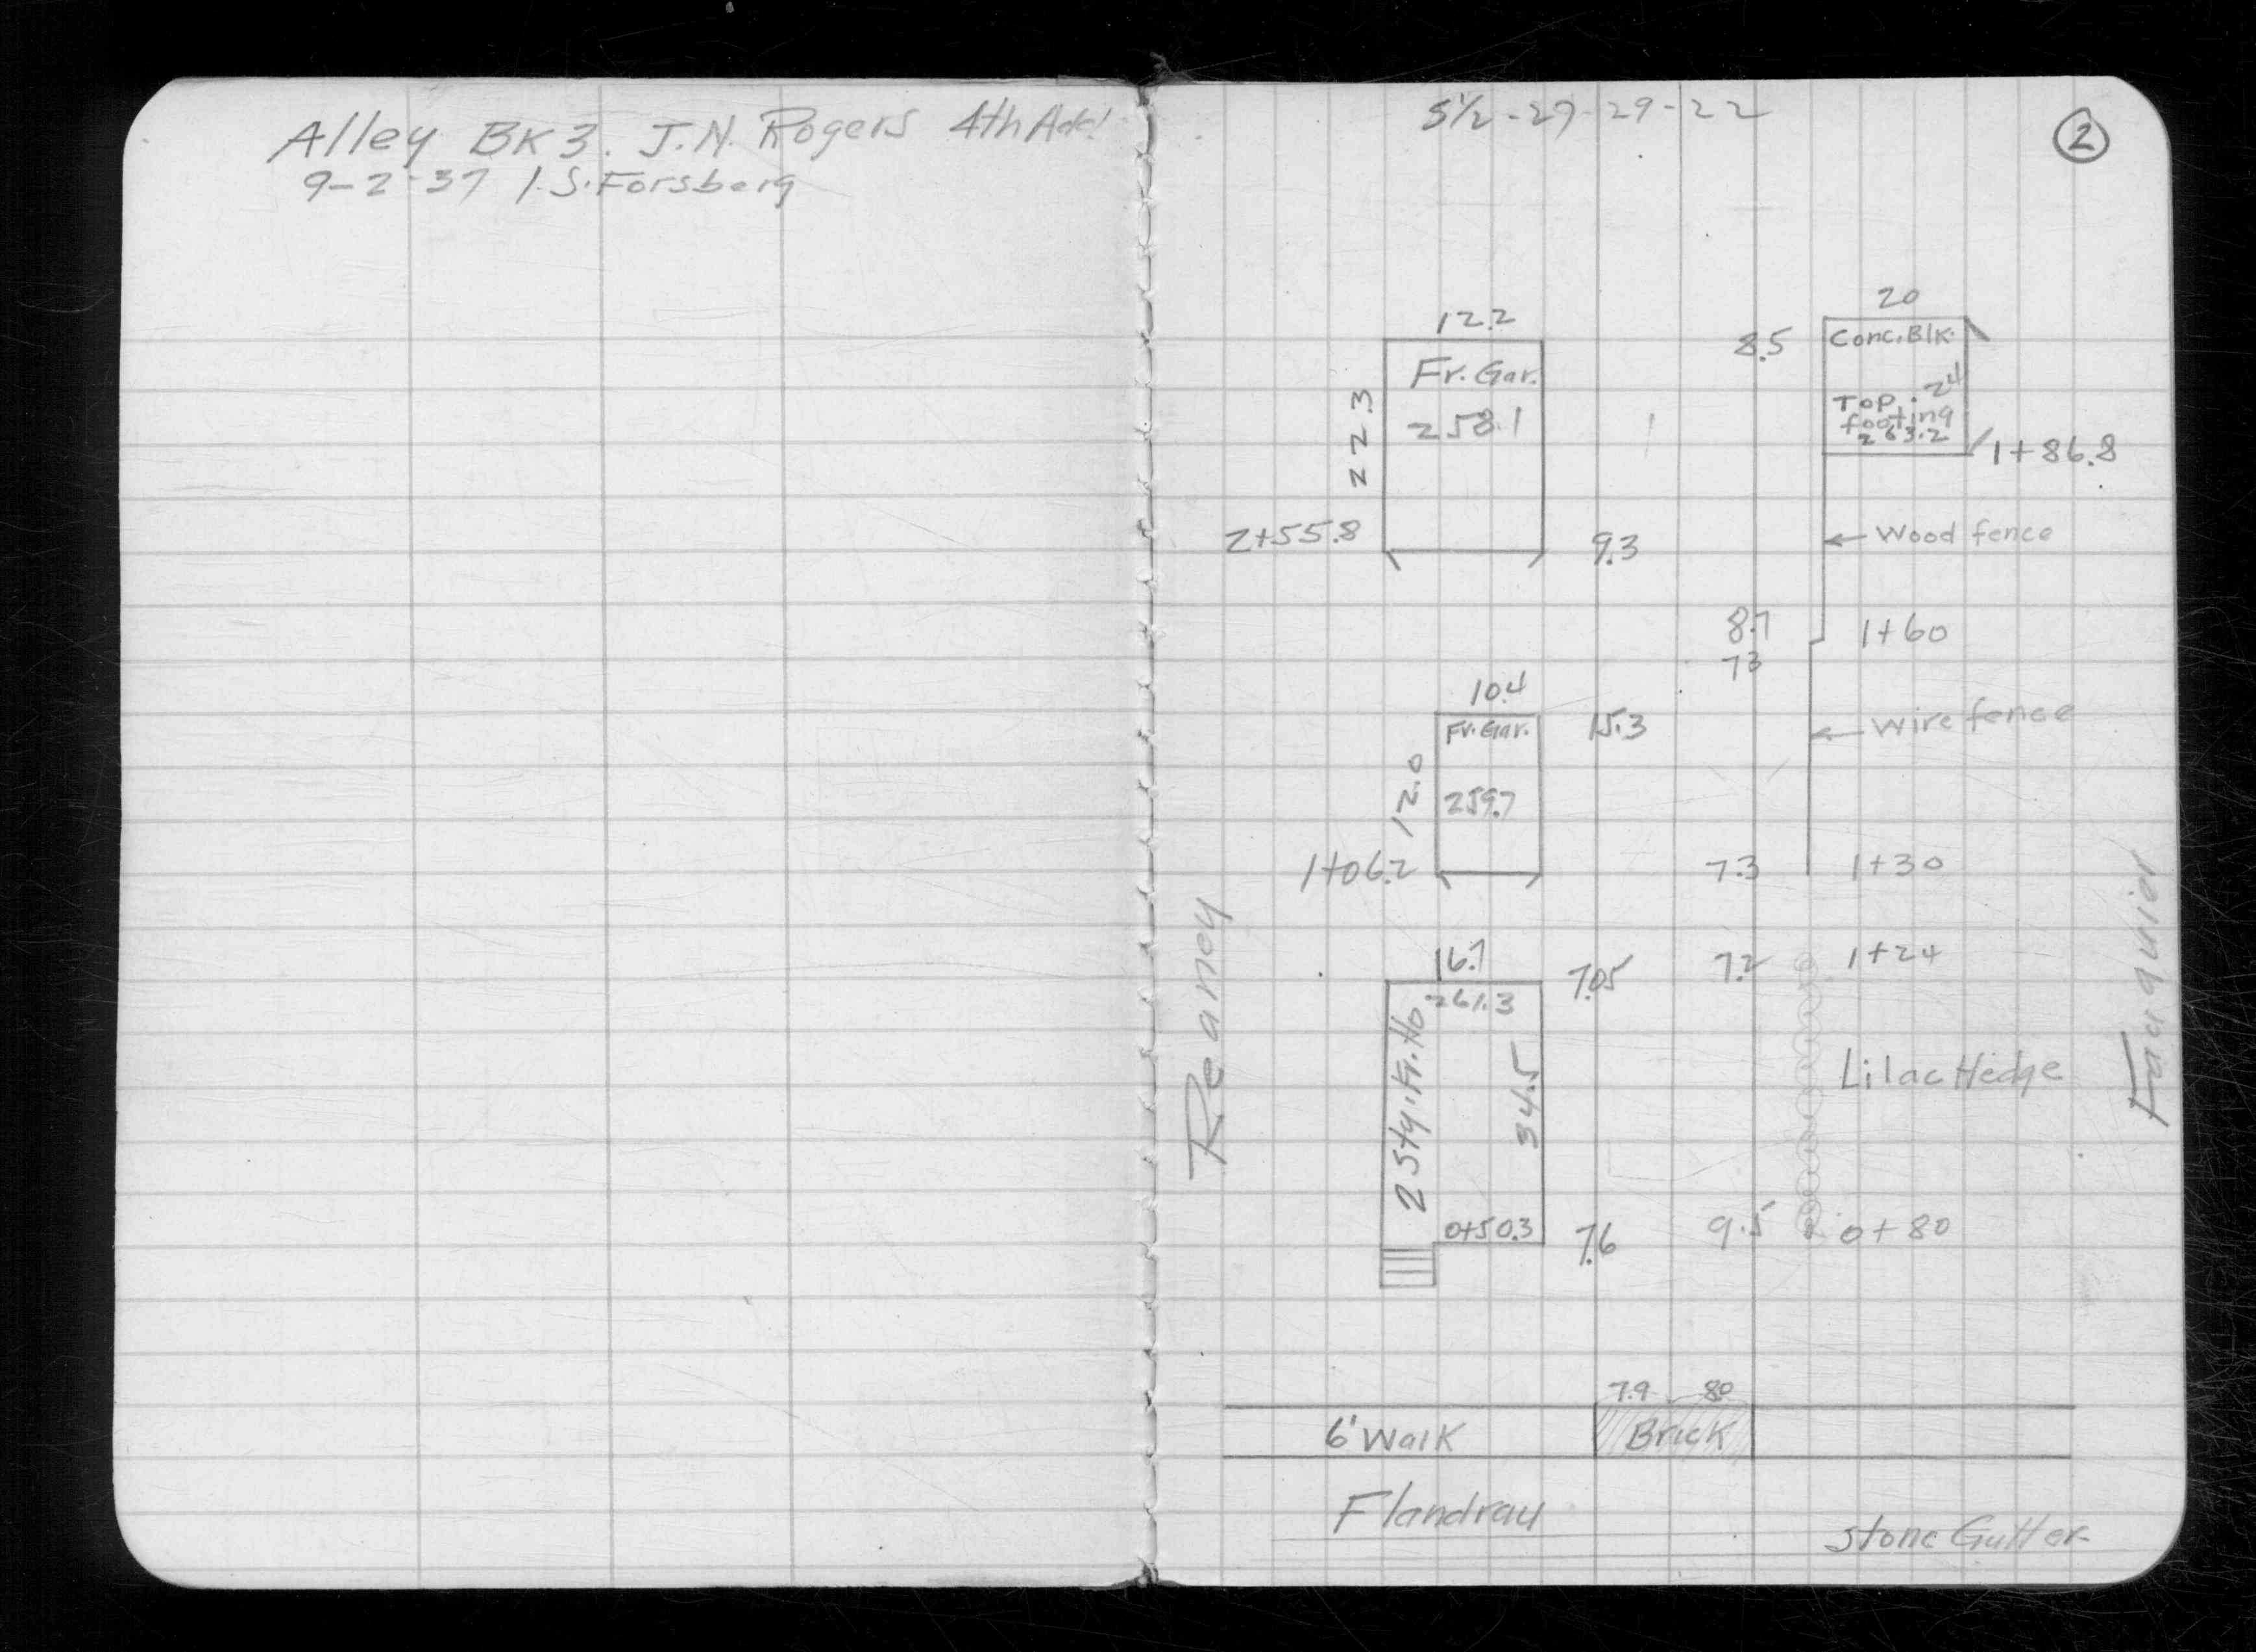 Alley BK 3. J.N. Rogers 4th Add!
9-2-37 I.S. Forsberg
S½-27-29-22
2
20
12.2
8.5
Conc. Blk.
Fr. Gar.
24
Top
footing
263.2
22.3
258.1
1+86.8
2+55.8
9.3
Wood fence
8.7
1+60
7.3
10.4
Fr. Gar.
15.3
Wire fence
12.0
259.7
1+06.2
7.3
1+30
Reaney
Fauquier
16.7
7.05
7.2
1+24
261.3
2 Sty. Fr. Ho.
34.5
Lilac Hedge
0+50.3
7.6
9.5
0+80
7.9
80
6' Walk
Brick
Flandrau
Stone Gutter